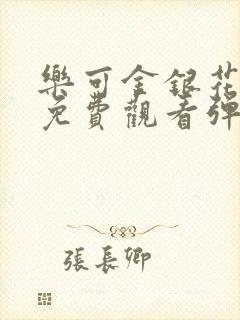 樂可金銀花
免費觀看彈
張長卿